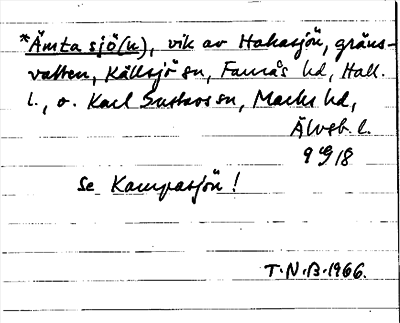 *Ämta sjö(n), vik av Hakasjön, gräns-
vatten, Källsjö sn, Faurås hd, Hall.
l., o. Karl Gustavs sn, Marks hd,
Älvsb. l.
9 18
Se Kampasjön!
T.N.B.1966.